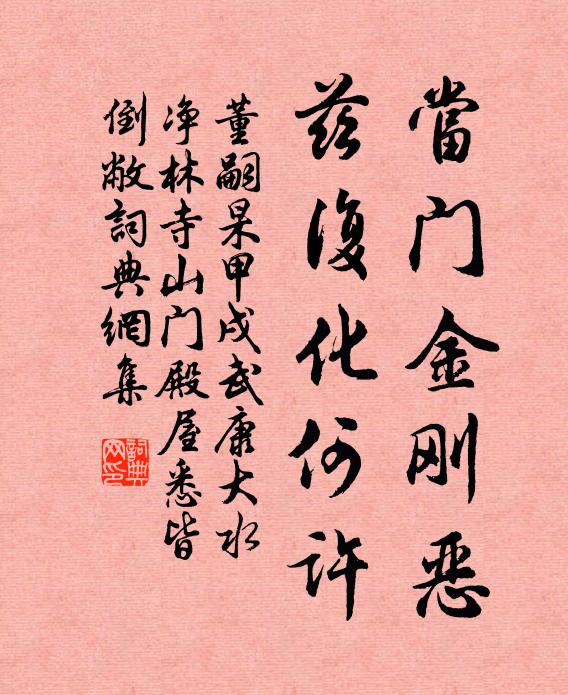 當门金刚恶
兹復化何许
董嗣杲甲戌武康大水
净林寺山门殿屋悉皆
倒敝詞典網集
詞典网印